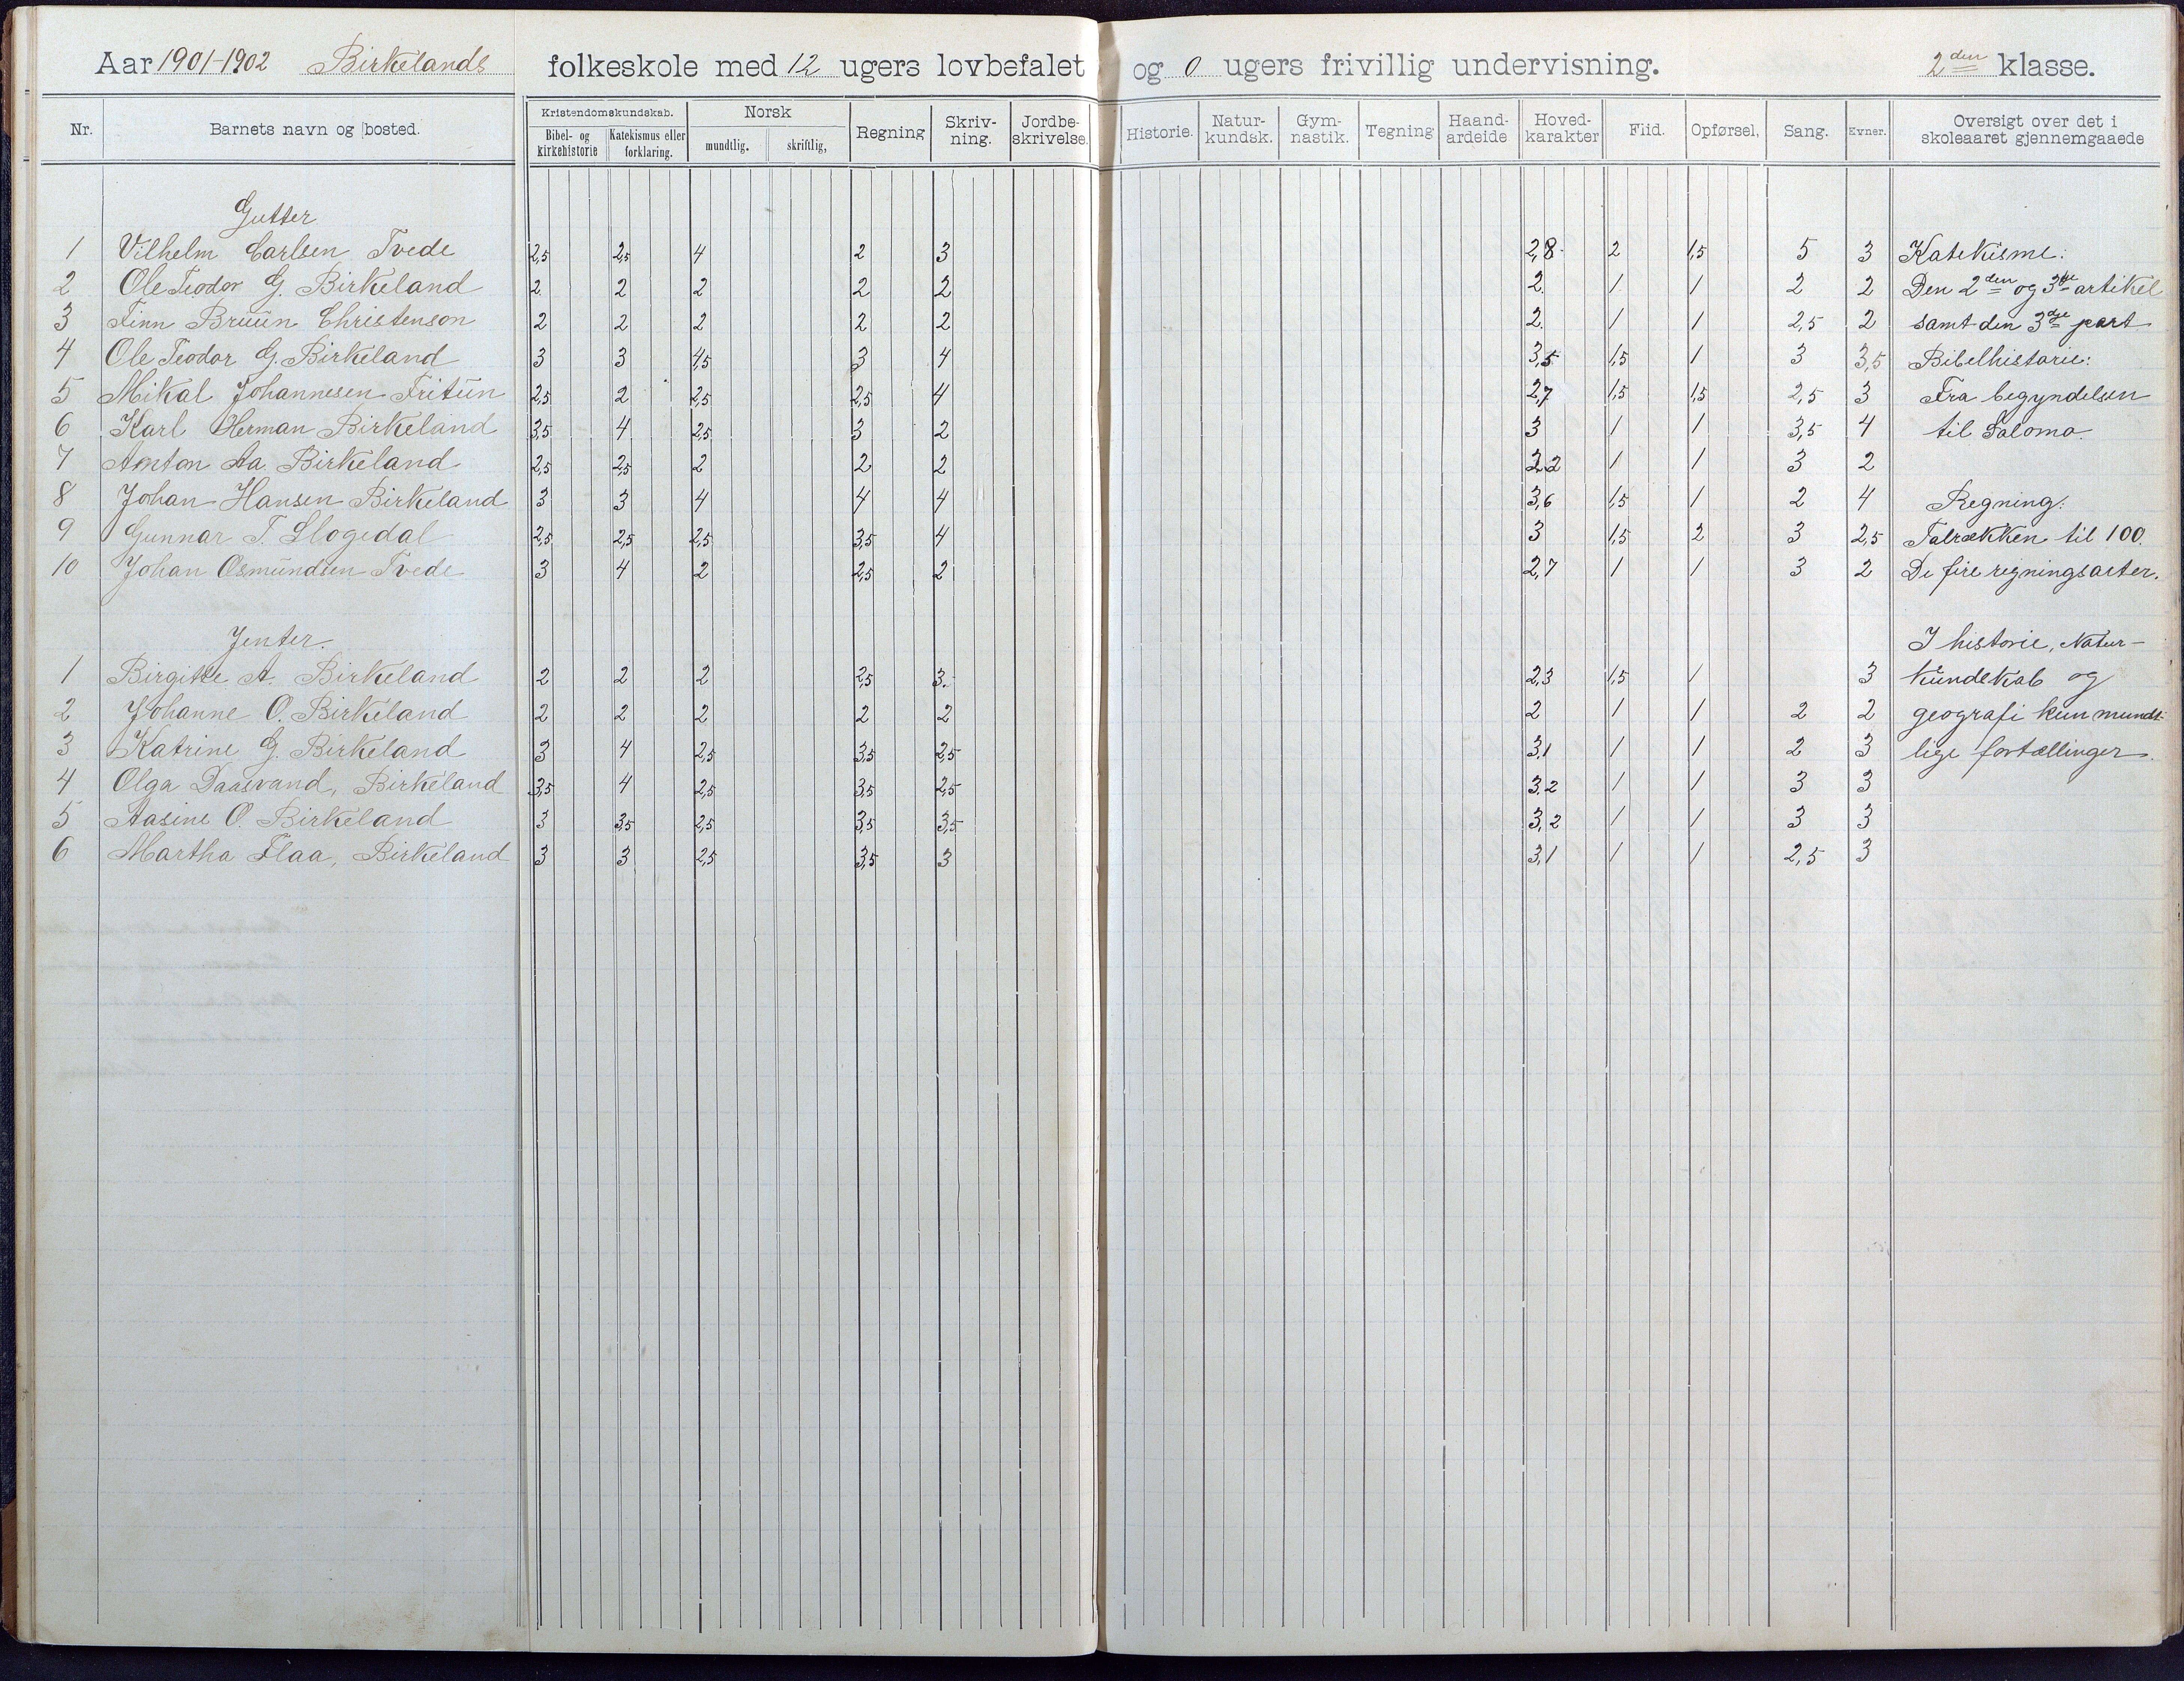 Aar 1901-1902 Birkelands folkeskole med 12 ugers lovbefalet og 0 ugers frivillig undervisning. 2den klasse.
Nr. Barnets navn og bosted. Kristendomskundskab. Bibel- og kirkehistorie Katekismus eller forklaring. Norsk mundtlig. skriftlig, Regning Skriv-ning. Jordbe-skrivelse. Historie. Natur-kundsk. Gym-nastik. Tegning Haand-ardeide Hoved-karakter Flid. Opførsel, Sang. Evner. Oversigt over det i skoleaaret gjennemgaaede
Gutter
1 Vilhelm Carlsen Tvede 2,5 2,5 4 2 3 2,8 2 1,5 5 3 Katekisme:
2 Ole Teodor G. Birkeland 2 2 2 2 2 2. 1 1 2 2 Den 2den og 3die artikel
3 Finn Bruun Christenson 2 2 2 2 2 2. 1 1 2,5 2 samt den 3die part
4 Ole Teodor G. Birkeland 3 3 4,5 3 4 3,5 1,5 1 3 3,5 Bibelhistorie:
5 Mikal Johannesen Fritun 2,5 2 2,5 2,5 4 2,7 1,5 1,5 2,5 3 Fra begyndelsen
6 Karl Herman Birkeland 3,5 4 2,5 3 2 3 1 1 3,5 4 til Salomo.
7 Anton Aa. Birkeland 2,5 2,5 2 2 2 2,2 1 1 3 2
8 Johan Hansen Birkeland 3 3 4 4 4 3,6 1,5 1 2 4 Regning:
9 Gunnar T. Slogedal 2,5 2,5 2,5 3,5 4 3 1,5 2 3 2,5 Talrækken til 100.
10 Johan Osmundsen Tvede 3 4 2 2,5 2 2,7 1 1 3 2 De fire regningsarter.
Jenter. I historie, Natur-
1 Birgitte A. Birkeland 2 2 2 2,5 3. 2,3 1,5 1 3 kundskab og
2 Johanne O. Birkeland 2 2 2 2 2 2 1 1 2 2 geografi kun mundt-
3 Katrine G. Birkeland 3 4 2,5 3,5 2,5 3,1 1 1 2 3 lige fortællinger.
4 Olga Daasvand, Birkeland 3,5 4 2,5 3,5 2,5 3,2 1 1 3 3
5 Aasine O. Birkeland 3 3,5 2,5 3,5 3,5 3,2 1 1 3 3
6 Martha Flaa, Birkeland 3 3 2,5 3,5 3 3,1 1 1 2,5 3